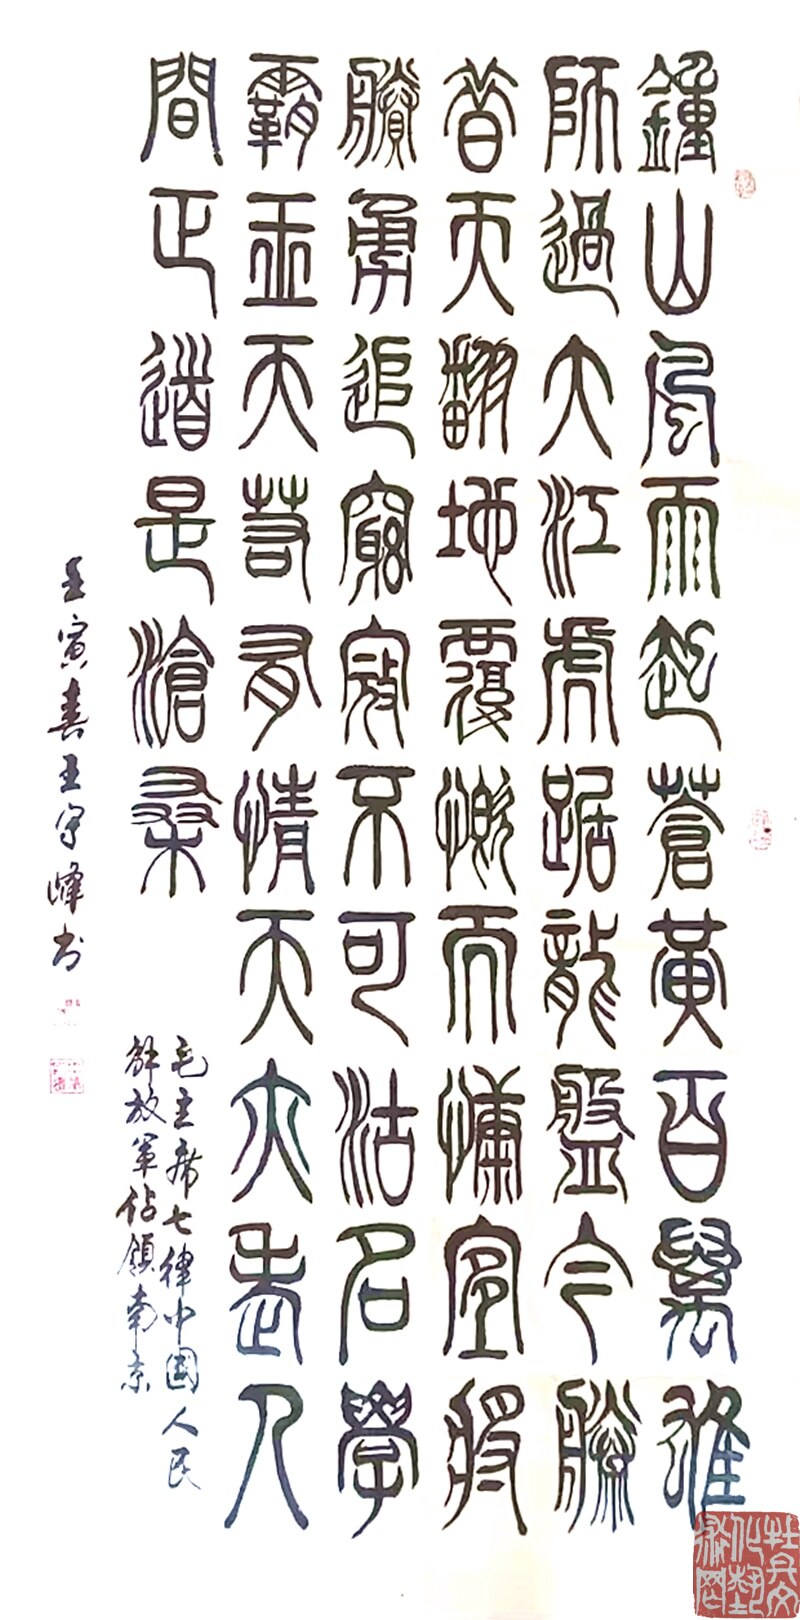 鍾山風雨起蒼黃百萬雄
師過大江虎踞龍盤今勝
昔天翻地覆慨而慷宜將
賸勇追窮寇不可沽名學
霸王天若有情天亦老人
間正道是滄桑
毛主席七律中國人民
解放軍佔領南京
壬寅春王宇峰书